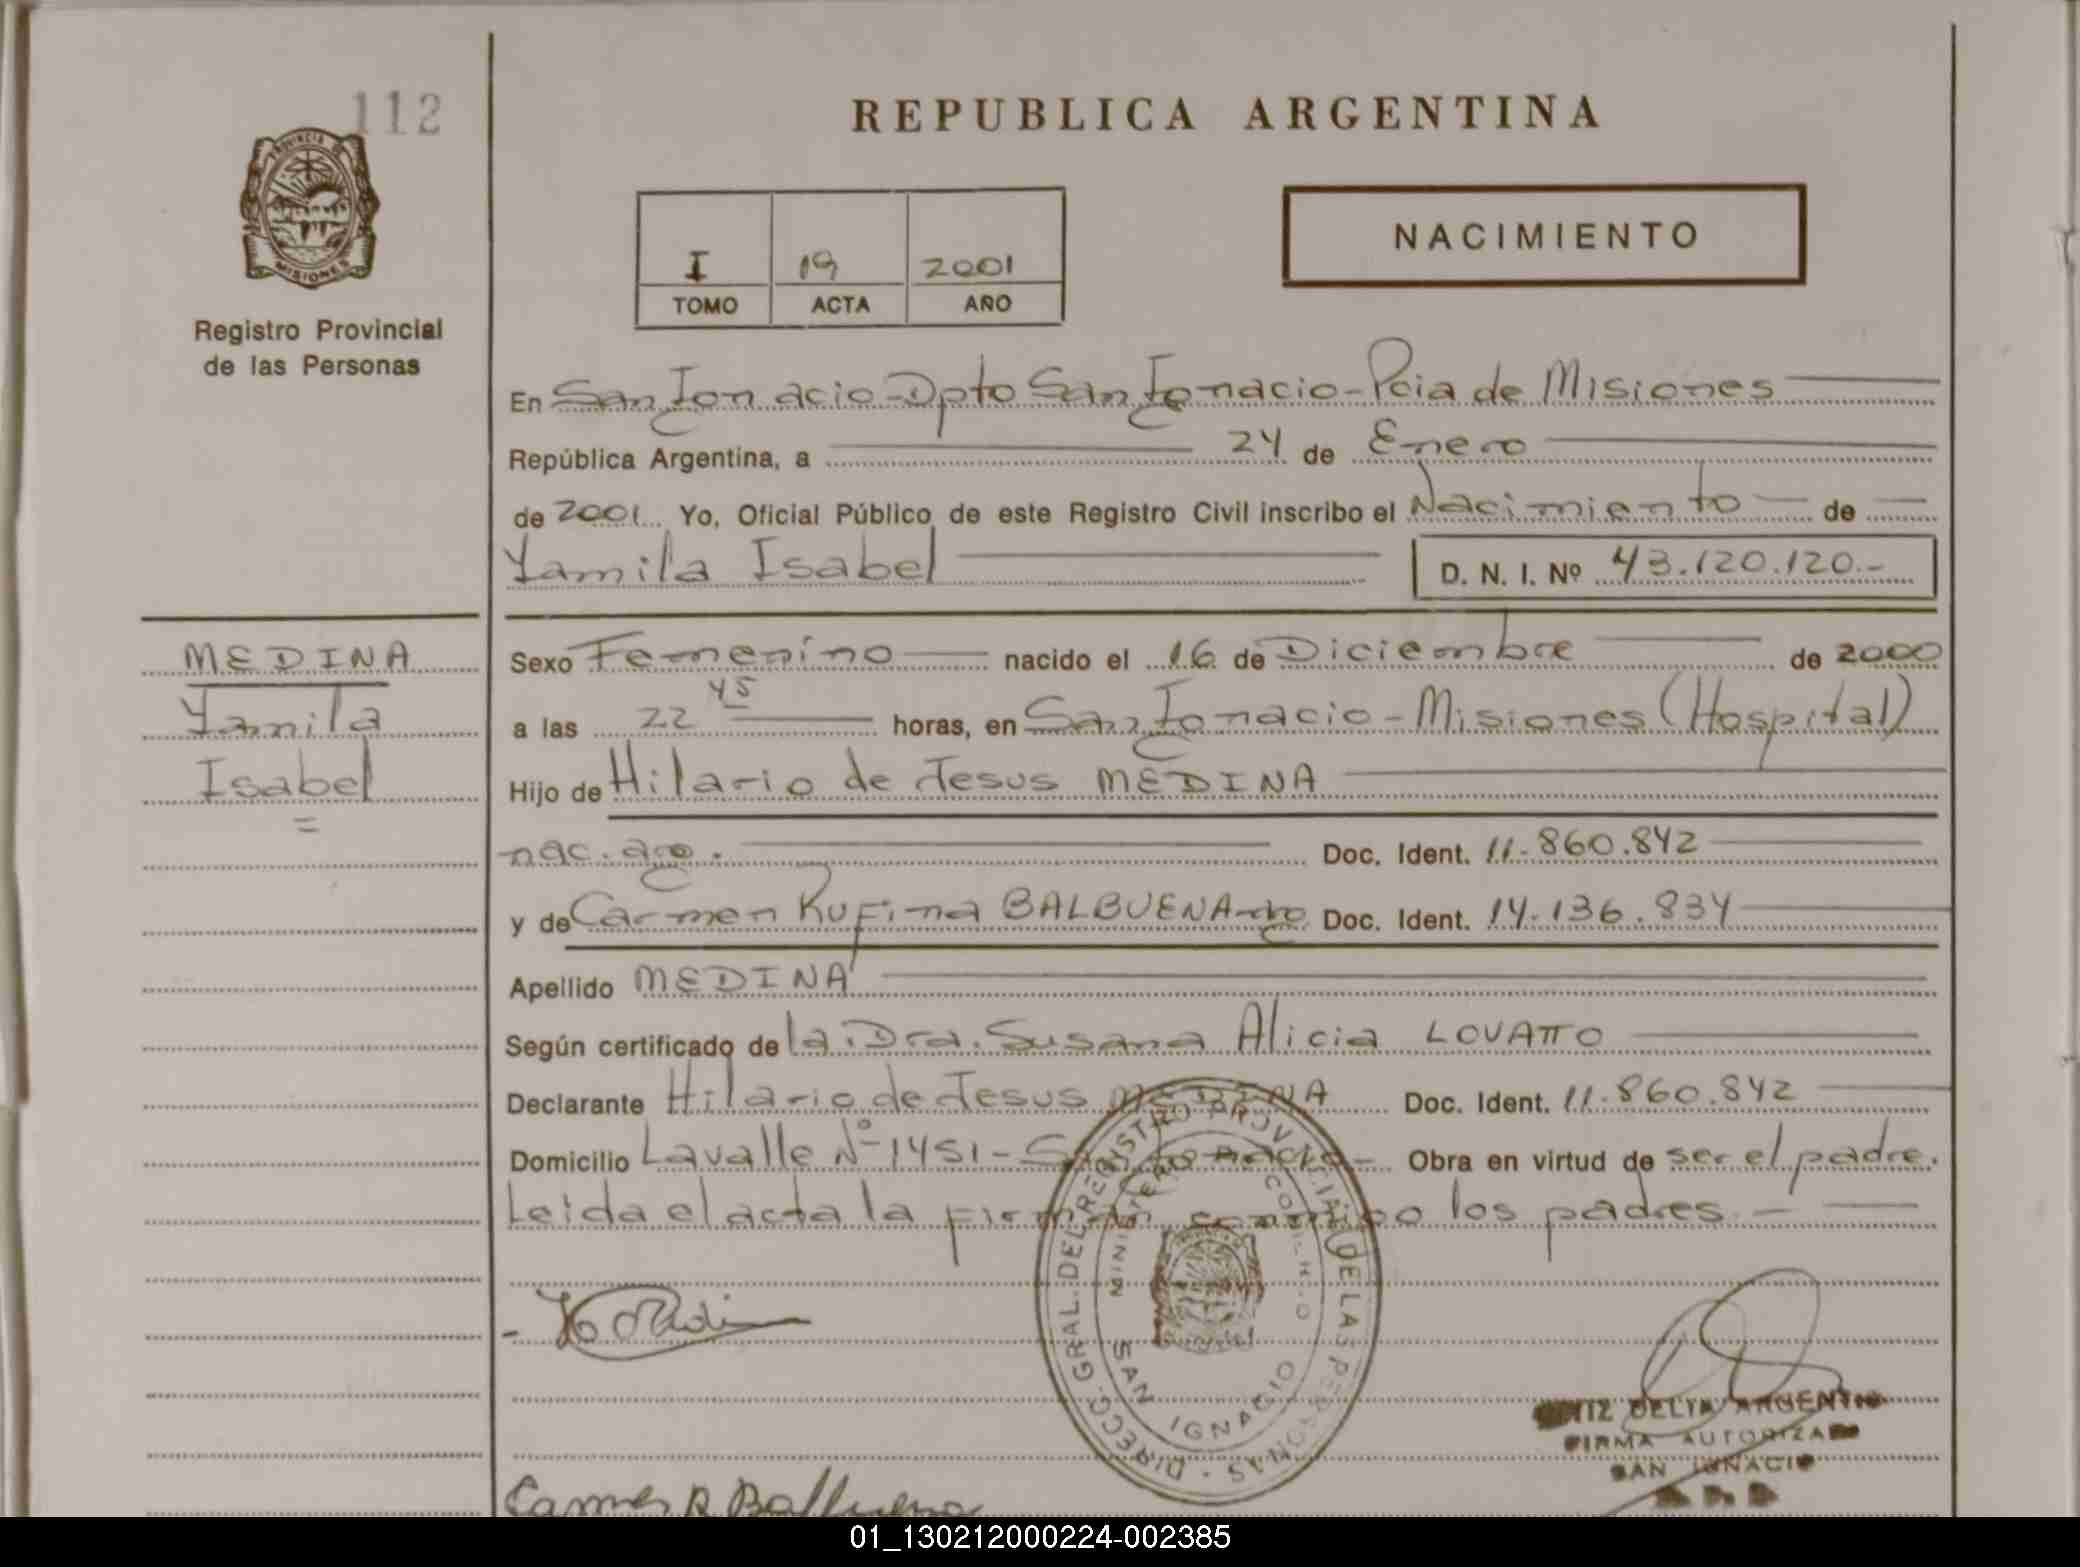 112
PROVINCIA DE
MISIONES
Registro Provincial
de las Personas
MEDINA
Yamila
Isabel
=
REPUBLICA ARGENTINA
I 19 2001
TOMO ACTA AÑO
NACIMIENTO
En San Ignacio - Dpto San Ignacio - Pcia de Misiones
República Argentina, a 24 de Enero
de 2001 Yo, Oficial Público de este Registro Civil inscribo el Nacimiento de
Yamila Isabel D. N. I. Nº 43.120.120.-
Sexo Femenino nacido el 16 de Diciembre de 2000
a las 22 45 horas, en San Ignacio - Misiones (Hospital)
Hijo de Hilario de Jesus MEDINA
nac. arg. Doc. Ident. 11.860.842
y de Carmen Rufina BALBUENA arg Doc. Ident. 14.136.834
Apellido MEDINA
Según certificado de la Dra. Susana Alicia LOVATTO
Declarante Hilario de Jesus MEDINA Doc. Ident. 11.860.842
Domicilio Lavalle Nº 1451 - San Ignacio - Obra en virtud de ser el padre.
Leida el acta la firman conmigo los padres. -
DIRECC. GRAL. DEL REGISTRO PROVINCIAL DE LAS PERSONAS
SAN IGNACIO
DELIA ARGENTINA
FIRMA AUTORIZADA
SAN IGNACIO
Carmen R Balbuena
01_130212000224-002385